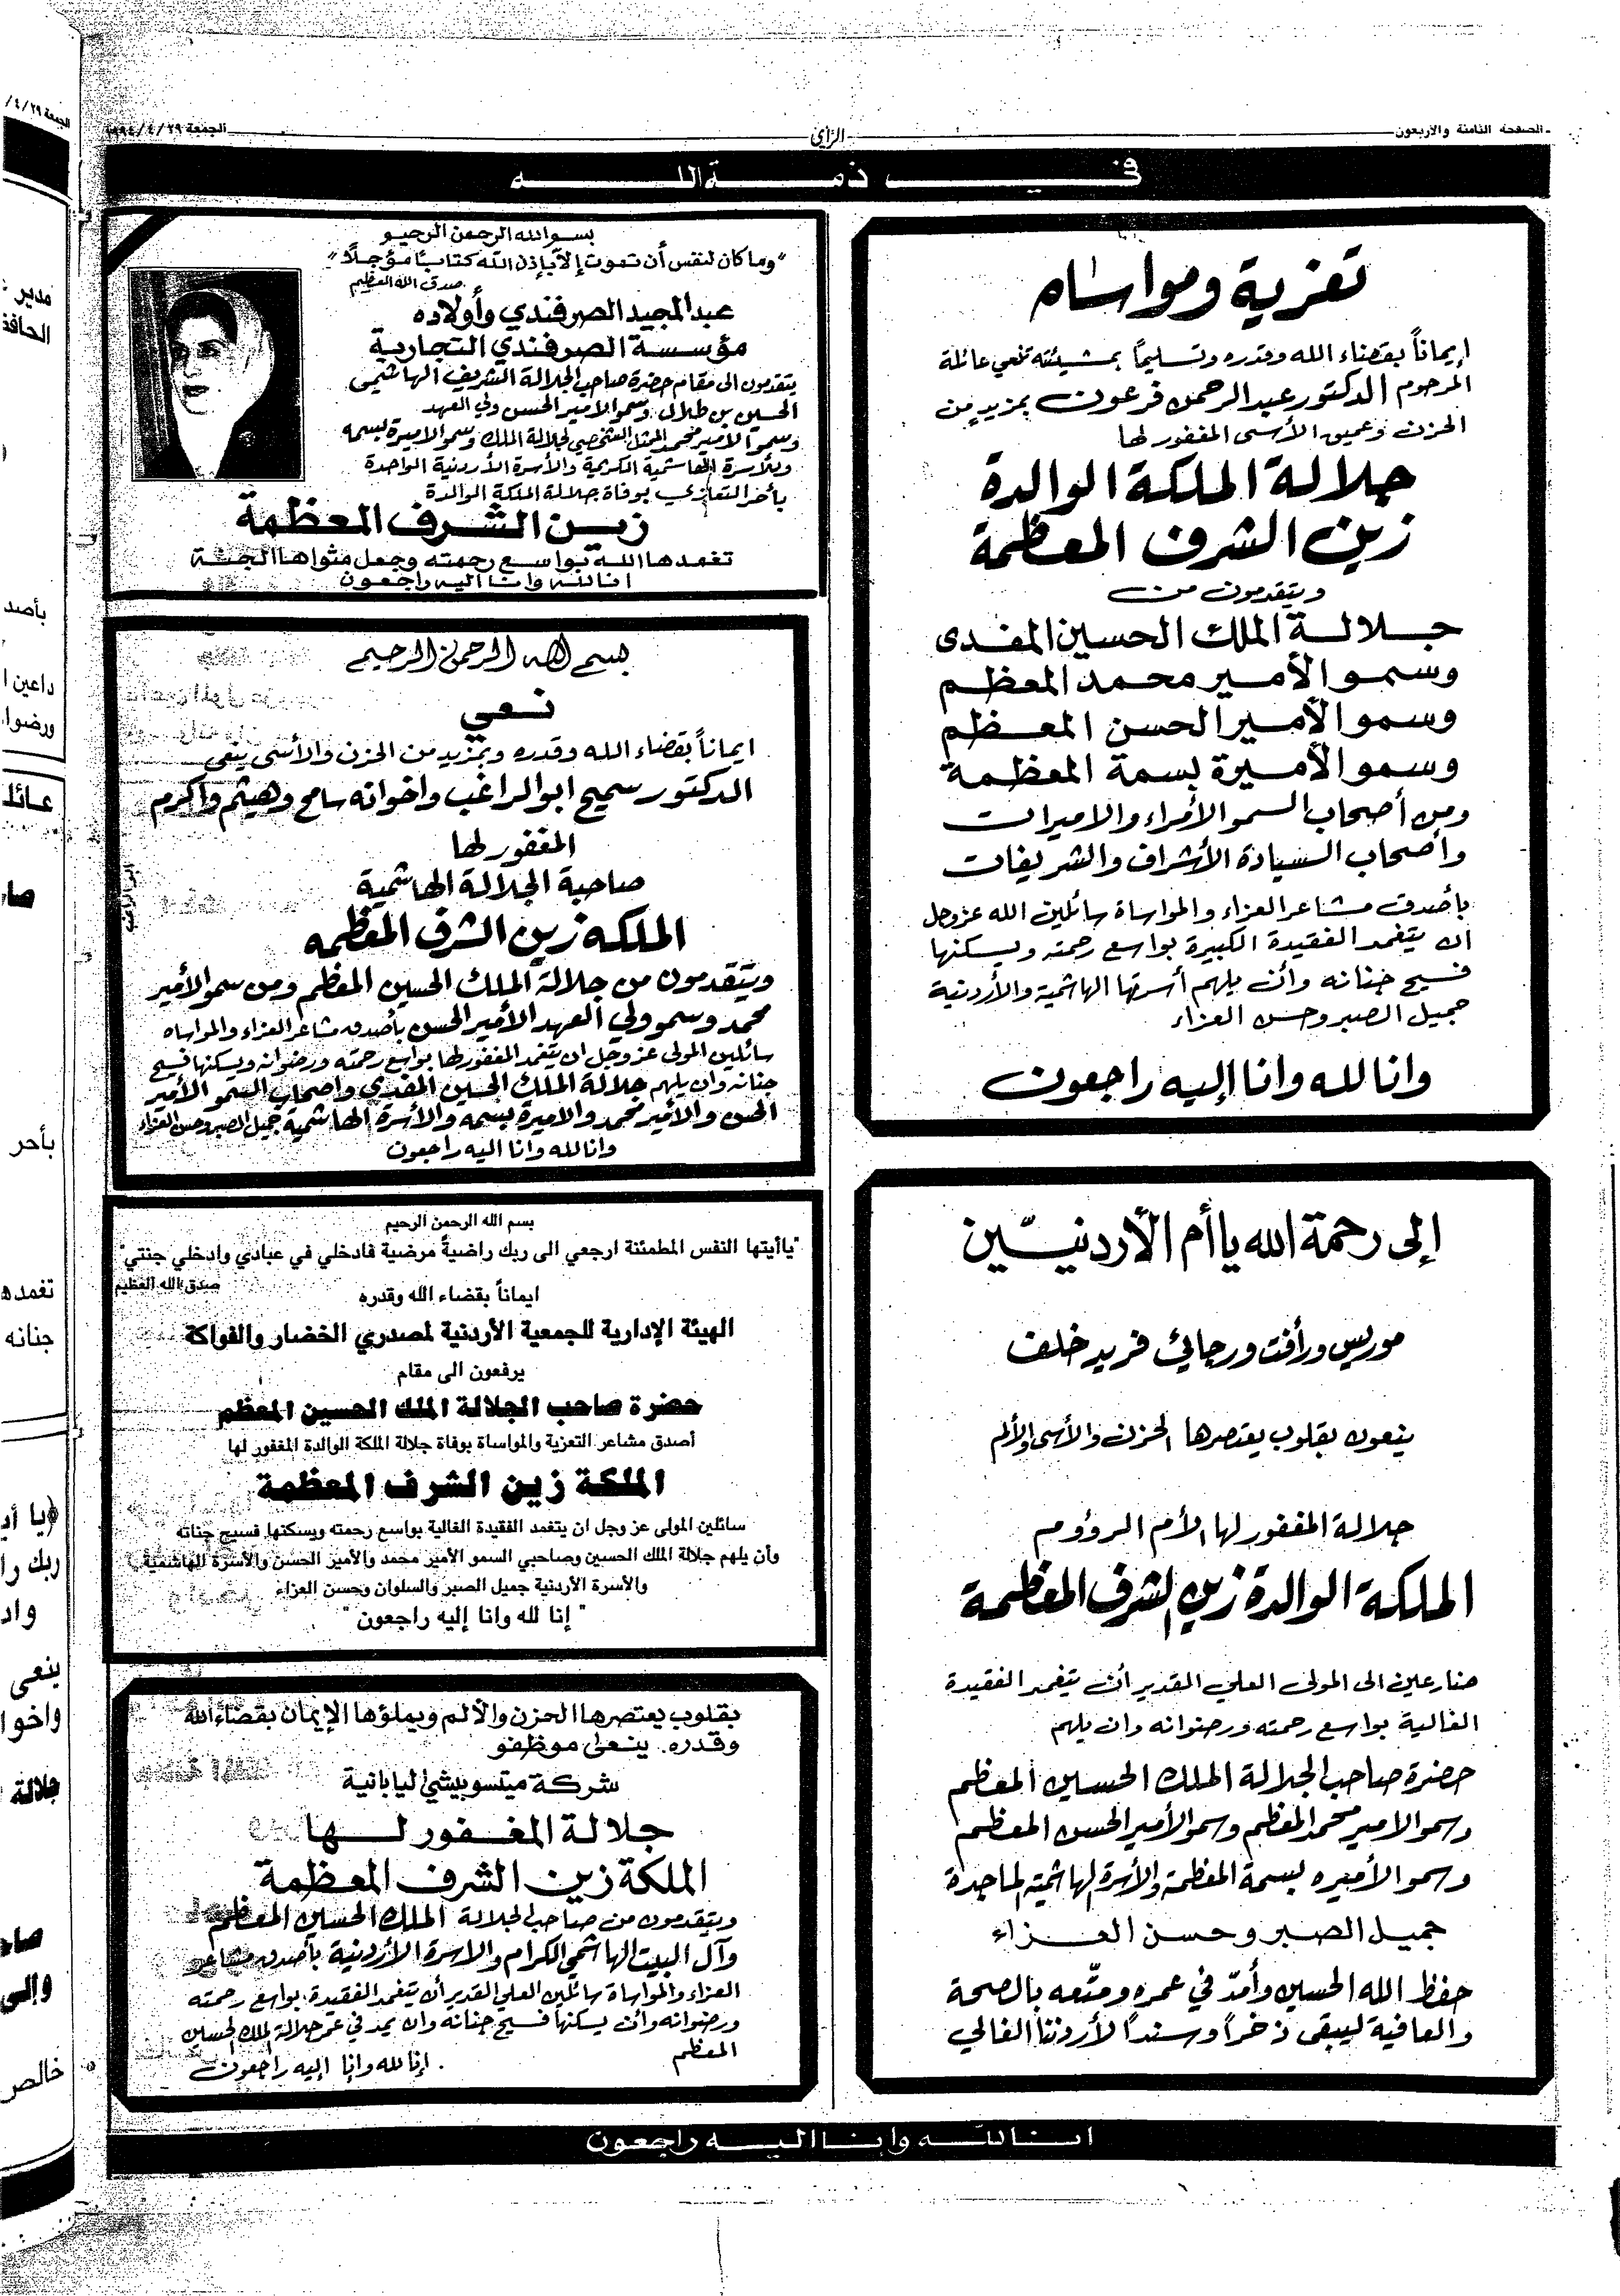 الصفحة الثامنة والأربعون
الرأي
الجمعة ٢٩/٤/١٩٩٤
في ذمة الله
تعزية ومواساه
إيماناً بقضاء الله وقدره وتسليماً بمشيئته تنعي عائلة
المرحوم الدكتور عبد الرحمن فرعون بمزيد من
الحزن وعميق الأسى المغفور لها
جلالة الملكة الوالدة
زين الشرف المعظمة
ويتقدمون من
جلالة الملك الحسين المفدى
وسمو الأمير محمد المعظم
وسمو الأمير الحسن المعظم
وسمو الأميرة بسمة المعظمة
ومن أصحاب السمو الأمراء والاميرات
وأصحاب السيادة الأشراف والشريفات
بأصدق مشاعر العزاء والمواساة سائلين الله عز وجل
ان يتغمد الفقيدة الكبيرة بواسع رحمته ويسكنها
فسيح جنانه وأن يلهم أسرتها الهاشمية والأردنية
جميل الصبر وحسن العزاء
وانا لله وانا إليه راجعون
إلى رحمة الله يا أم الأردنيّين
موريس ورأفت ورجائي فريد خلف
ينعون بقلوب يعتصرها الحزن والأسى والألم
جلالة المغفور لها الأم الرؤوم
الملكة الوالدة زين الشرف المعظمة
ضارعين الى المولى العلي القدير أن يتغمد الفقيدة
الغالية بواسع رحمته ورضوانه وان يلهم
حضرة صاحب الجلالة الملك الحسين المعظم
وسمو الامير محمد المعظم وسمو الأمير الحسن المعظم
وسمو الأميره بسمة المعظمة والأسرة الهاشمية الماجدة
جميل الصبر وحسن العزاء
حفظ الله الحسين وأمدّ في عمره ومتّعه بالصحة
والعافية ليبقى ذخراً وسنداً لأردننا الغالي
بسم الله الرحمن الرحيم
"وما كان لنفس أن تموت إلا بإذن الله كتاباً مؤجلاً"
صدق الله العظيم
عبد المجيد الصرفندي وأولاده
مؤسسة الصرفندي التجارية
يتقدمون الى مقام حضرة صاحب الجلالة الشريف الهاشمي
الحسين بن طلال وسمو الامير الحسن ولي العهد
وسمو الأمير محمد الممثل الشخصي لجلالة الملك وسمو الاميرة بسمه
وللأسرة الهاشمية الكريمة والأسرة الأردنية الواحدة
بأحر التعازي بوفاة جلالة الملكة الوالدة
زين الشرف المعظمة
تغمدها الله بواسع رحمته وجعل مثواها الجنة
انا لله وانا اليه راجعون
بسم الله الرحمن الرحيم
نعي
ايماناً بقضاء الله وقدره وبمزيد من الحزن والأسى ينعى
الدكتور سميح ابو الراغب واخوانه سامح وهيثم واكرم
المغفور لها
صاحبة الجلالة الهاشمية
الملكه زين الشرف المعظمه
ويتقدمون من جلالة الملك الحسين المعظم ومن سمو الأمير
محمد وسمو ولي العهد الأمير الحسن بأصدق مشاعر العزاء والمواساه
سائلين المولى عز وجل ان يتغمد المغفور لها بواسع رحمته ورضوانه ويسكنها فسيح
جنانه وان يلهم جلالة الملك الحسين المفدى واصحاب السمو الأمير
الحسن والأمير محمد والاميرة بسمه والأسرة الهاشمية جميل الصبر وحسن العزاء
وانا لله وانا اليه راجعون
بسم الله الرحمن الرحيم
"ياأيتها النفس المطمئنة ارجعي الى ربك راضيةً مرضية فادخلي في عبادي وادخلي جنتي"
صدق الله العظيم
ايماناً بقضاء الله وقدره
الهيئة الإدارية للجمعية الأردنية لمصدري الخضار والفواكة
يرفعون الى مقام
حضرة صاحب الجلالة الملك الحسين المعظم
أصدق مشاعر التعزية والمواساة بوفاة جلالة الملكة الوالدة المغفور لها
الملكة زين الشرف المعظمة
سائلين المولى عز وجل ان يتغمد الفقيدة الغالية بواسع رحمته ويسكنها فسيح جناته
وأن يلهم جلالة الملك الحسين وصاحبي السمو الأمير محمد والأمير الحسن والأسرة الهاشمية
والأسرة الأردنية جميل الصبر والسلوان وحسن العزاء
"إنا لله وانا إليه راجعون"
بقلوب يعتصرها الحزن والألم ويملؤها الإيمان بقضاء الله
وقدره. ينعى موظفو
شركة ميتسوبيشي اليابانية
جلالة المغفور لها
الملكة زين الشرف المعظمة
ويتقدمون من صاحب الجلالة الملك الحسين المعظم
وآل البيت الهاشمي الكرام والاسرة الأردنية بأصدق مشاعر
العزاء والمواساة سائلين العلي القدير أن يتغمد الفقيدة بواسع رحمته
ورضوانه وأن يسكنها فسيح جنانه وان يمد في عمر جلالة الملك الحسين
المعظم
إنا لله وإنا إليه راجعون
انا لله وإنا اليه راجعون